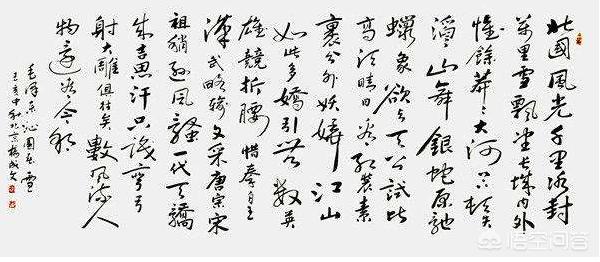 北國風光千里冰封
萬里雪飄望長城內外
惟餘莽々大河上下頓失
滔々山舞銀蛇原馳
蠟象欲與天公試比
高須晴日看紅裝素
裹分外妖嬈江山
如此多嬌引無數英
雄競折腰惜秦皇
漢武略輸文采唐宗宋
祖稍遜風騷一代天驕
成吉思汗只識彎弓
射大雕俱往矣數風流人
物還看今朝
毛澤東沁園春雪
悟空问答